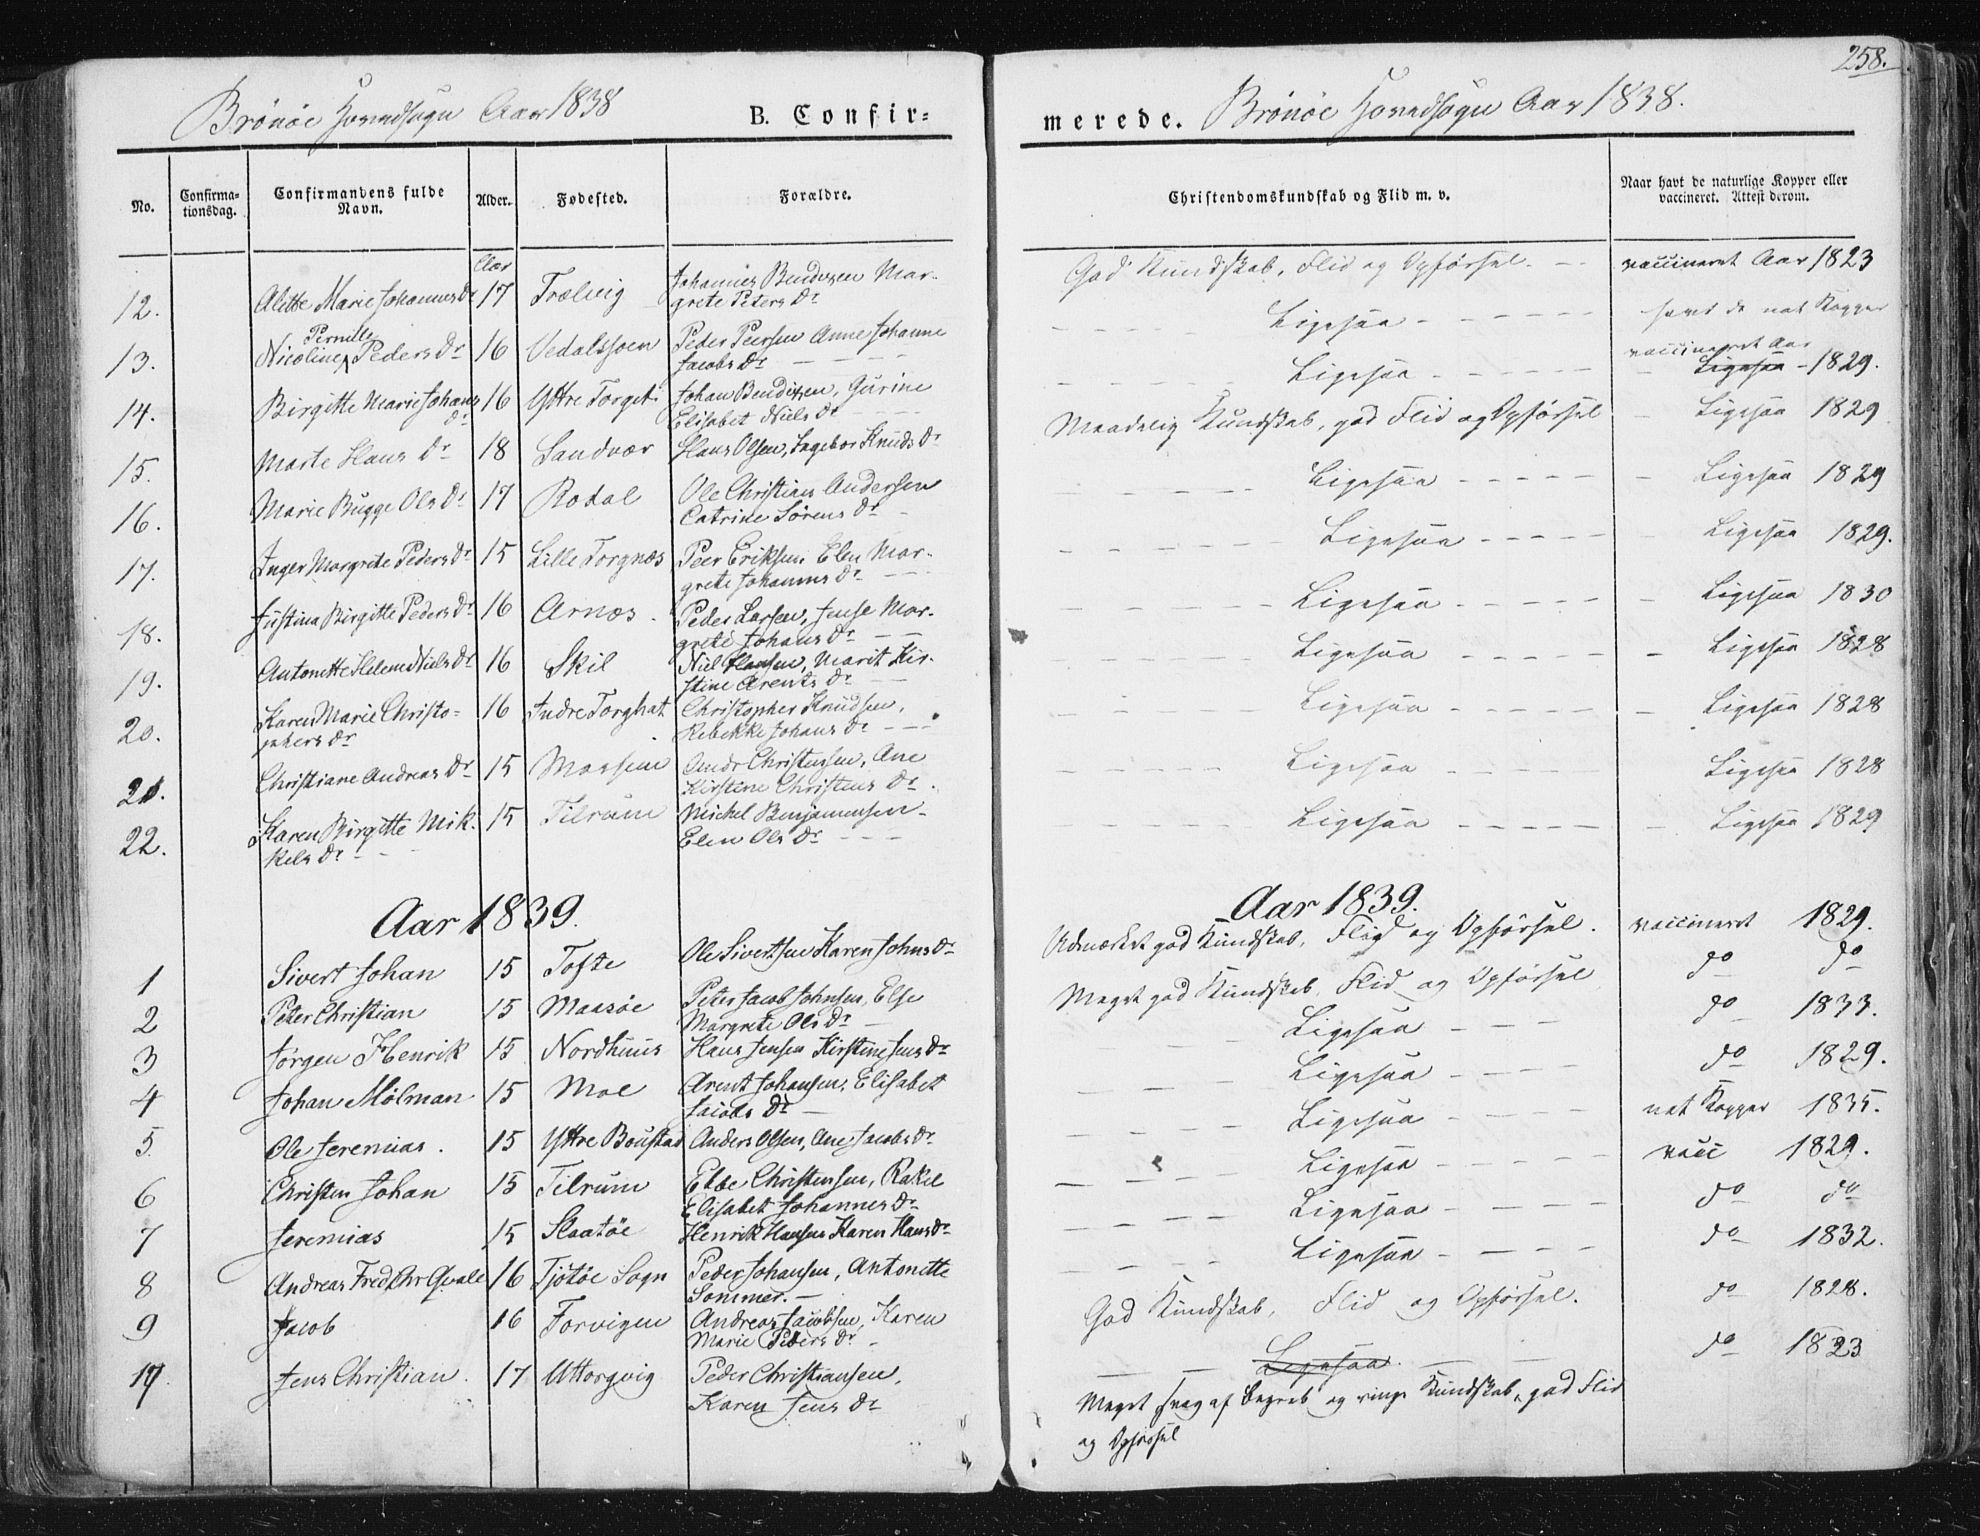 258.
Brönöe Hovedsogn Aar 1838
B. Confir=
merede. Brönöe Hovedsogn Aar 1838.
No.
Confirma-
tionsdag.
Confirmandens fulde
Navn.
Alder.
Fødested.
Forældre.
Christendomskundskab og Flid m. v.
Naar havt de naturlige Kopper eller
vaccineret. Attest derom.
Aar
12. Alette Marie Johannes Dr 17 Trælvig Johannes Bendixen Mar-
grete Peters Dr
God Kundskab, Flid og Opførsel. vaccineret Aar 1823
13. Nicoline Pernille Peders Dr 16 Peder Peersen Anne Johanne
Jacobs Dr
Ligesaa havt de nat Kopper
14. Birgitte Marie Johans Dr 16 Yttre Torget Johan Bendixen, Gurine
Elisabet Niels Dr
Ligesaa vaccineret Aar
Ligesaa 1829.
15. Marte Hans Dr 18 Sandvær Hans Olsen, Ingebor Knuds Dr
Maadelig Kundskab, god Flid og Opførsel Ligesaa 1829
16. Marie Bugge Ols Dr 17 Rodal Ole Christian Andersen
Catrine Sörens Dr
Ligesaa Ligesaa 1829
17. Inger Margrete Peders Dr 15 Lille Torgnæs Peer Eriksen, Elen Mar-
grete Johannes Dr
Ligesaa Ligesaa 1829.
18. Justina Birgitte Peders Dr 16 Arnæs. Peder Larsen, Jense Mar-
grete Johans Dr
Ligesaa Ligesaa 1830
19. Antonette Helena Niels Dr 16 Skil Niel Hansen, Marit Kir-
stine Arents Dr
Ligesaa Ligesaa 1828
20. Karen Marie Christo=
phers Dr 16 Indre Torghat Christopher Knudsen,
Rebekke Johans Dr
Ligesaa Ligesaa 1828
21. Christiane Andreas Dr 15 Christensen, Ane
Kirstine Christens Dr.
Ligesaa Ligesaa 1828
22. Karen Birgitte Mik-
kels Dr 15 Tilrum Michel Benjamensen
Elen Ols Dr
Ligesaa Ligesaa 1829
Aar 1839.
Aar 1839.
1 Sivert Johan 15 Tofte Ole Sivertsen Karen Johns Dr
Udmærket god Kundskab, Flid og Opførsel. vaccineret 1829.
2 Peter Christian 15 Maasöe Peter Jacob Johnsen, Else
Margrete Ols Dr
Meget god Kundskab, Flid og Opførsel do do
3 Jörgen Henrik 15 Nordhuus Hans Jensen Kirstine Jens Dr
Ligesaa do 1833.
4 Johan Mölman 15 Moe Arent Johansen, Elisabet
Jacobs Dr
Ligesaa do 1829.
5. Ole Jeremias. 15 Yttre Boustad Anders Olsen, Ane Jacobs Dr
Ligesaa nat Kopper 1835.
6 Christen Johan 15 Tilrum Ebbe Christensen, Rakel
Elisabet Johannes Dr
Ligesaa vacc 1829.
7 Jeremias 15 Slaatöe Henrik Hansen Karen Hans Dr
Ligesaa do do
8 Andreas Fred. Chr Qvale 16 Tjötöe Sogn Peder Johansen, Antonette
Sommer.
Ligesaa do 1832.
9 Jacob 16 Torvigen Andreas Jacobsen, Karen
Marie Peders Dr
God Kundskab, Flid og Opførsel. do 1828.
Jens Christian. 17 Uttorgvig Peder Christiansen,
Karen Jens Dr
Ligesaa. do 1823
Meget svag af Begreb og ringe Kundskab, god Flid
og Opførsel